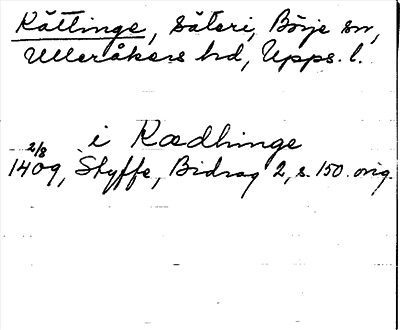 Kättinge, säteri, Börje sn,
Ulleråkers hd, Upps. l.
i Kædhinge
2/8
1409, Styffe, Bidrag 2, s. 150. orig.